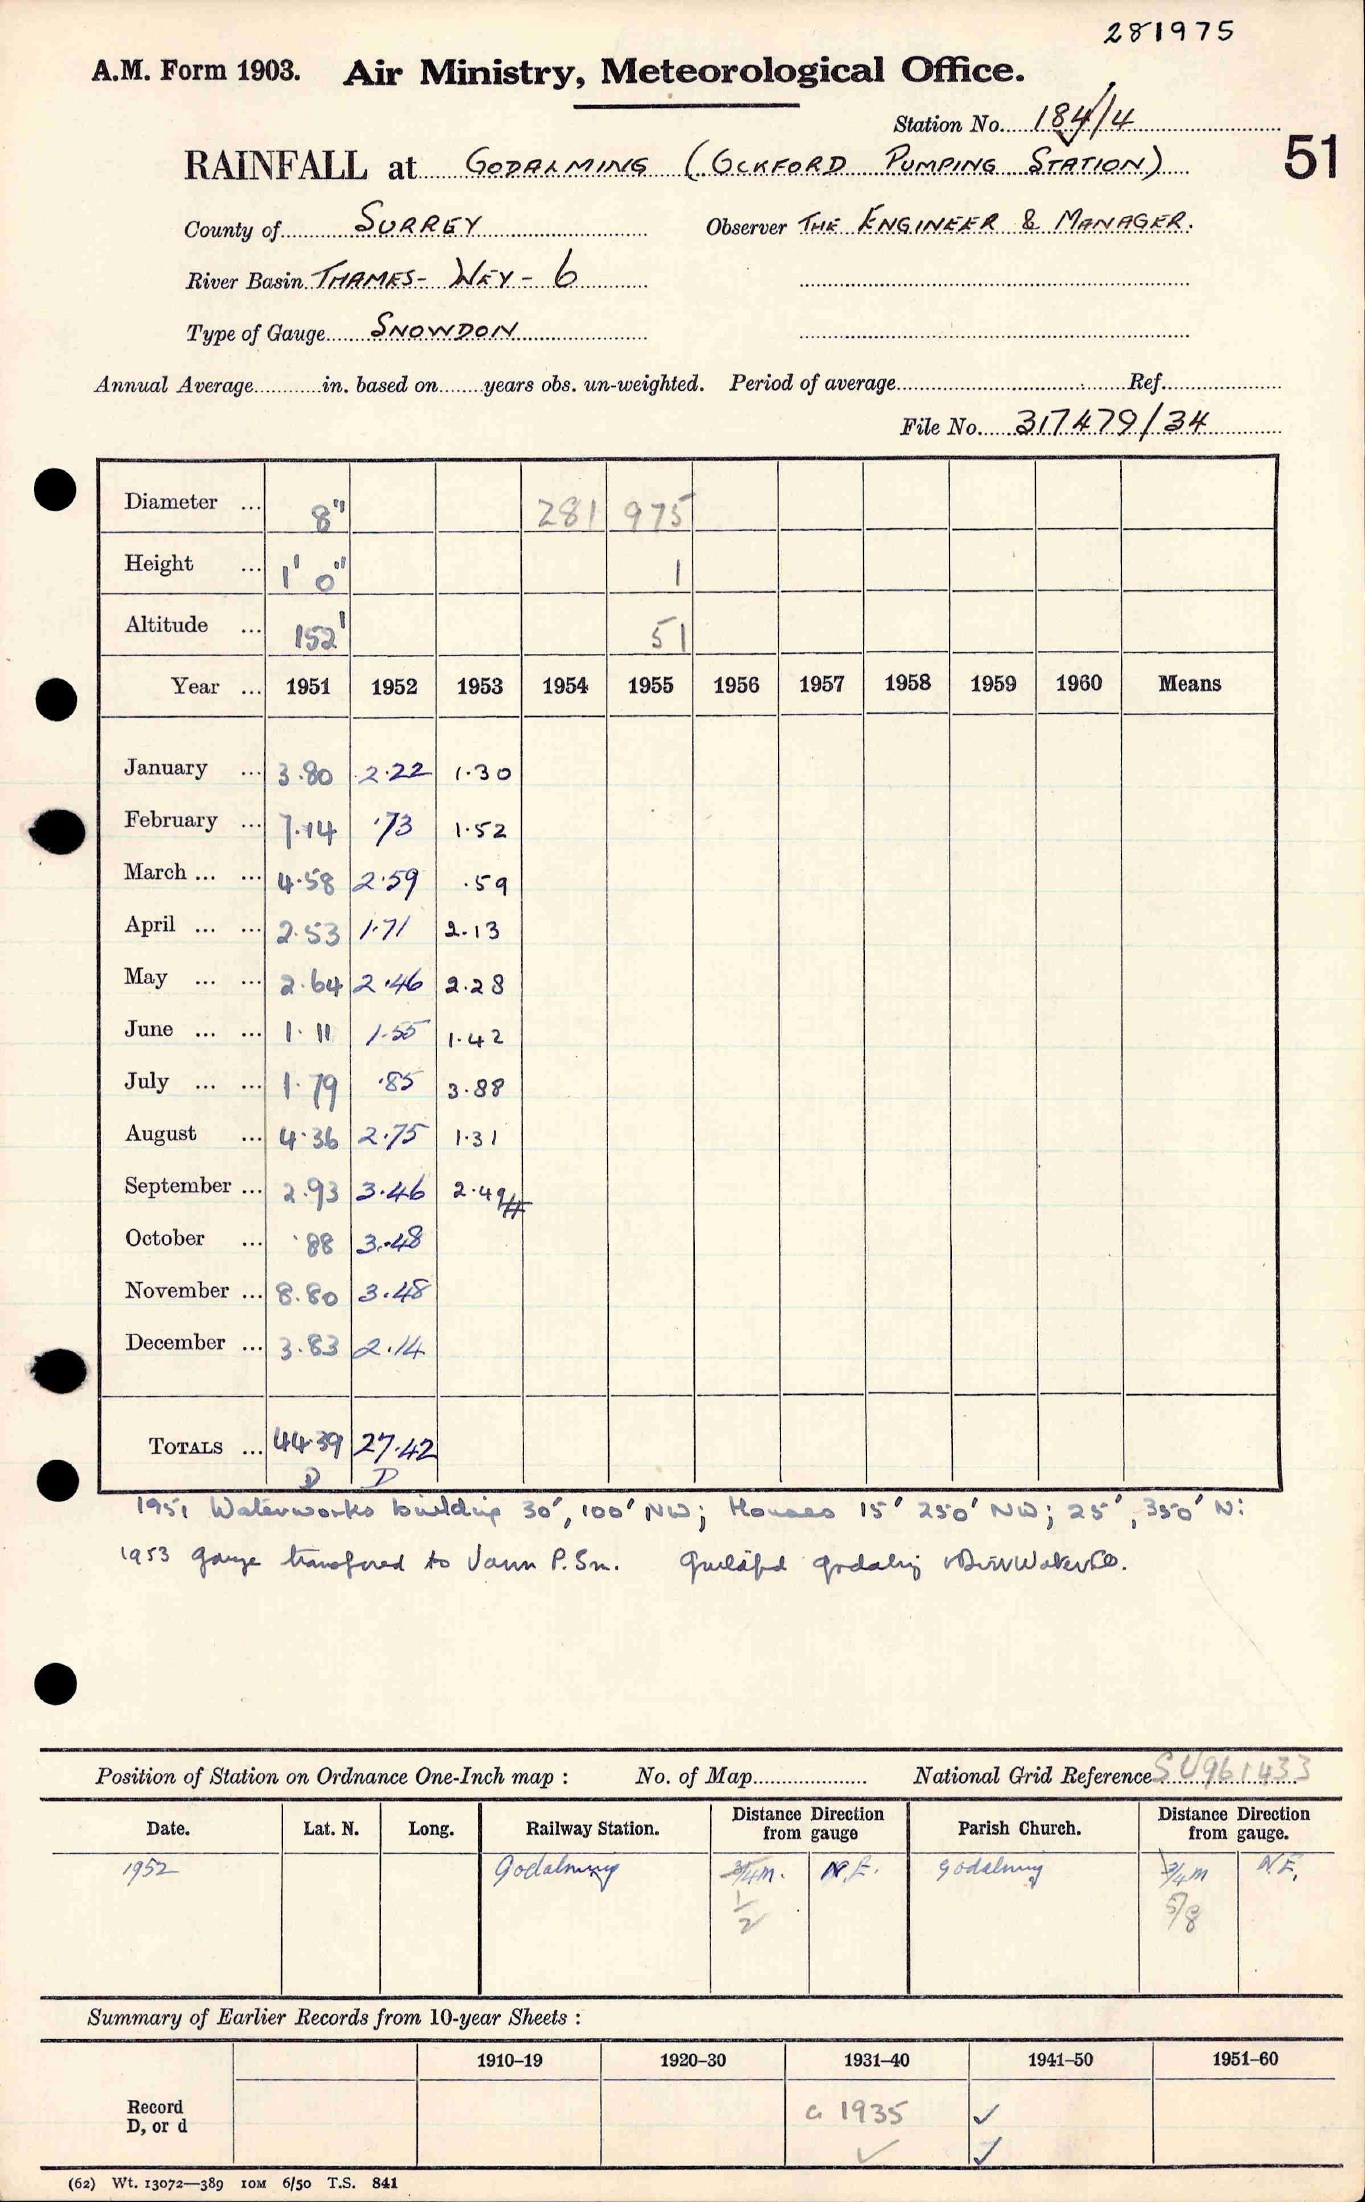 281975
A.M. Form 1903. Air Ministry, Meteorological Office.
Station No. 184/4
51
RAINFALL at GODALMING (OCKFORD PUMPING STATION)
County of SURREY Observer THE ENGINEER & MANAGER.
River Basin THAMES - WEY - 6
Type of Gauge SNOWDON
Annual Average in. based on years obs. un-weighted. Period of average Ref.
File No. 317479/34
Diameter ... 8" 281 975
Height ... 1' 0" 1
Altitude ... 152' 51
Year ... 1951 1952 1953 1954 1955 1956 1957 1958 1959 1960 Means
January ... 3.80 2.22 1.30
February ... 7.14 .73 1.52
March ... ... 4.58 2.59 .59
April ... ... 2.53 1.71 2.13
May ... ... 2.64 2.46 2.28
June ... ... 1.11 1.55 1.42
July ... ... 1.79 .85 3.88
August ... 4.36 2.75 1.31
September ... 2.93 3.46 2.49
October ... .88 3.48
November ... 8.80 3.48
December ... 3.83 2.14
TOTALS ... 44.39 27.42
D D
1951 Waterworks building 30', 100' NW; Houses 15' 250' NW; 25', 350' N:
1953 gauge transfered to Vann P. Sn. Guildfd Godalmg
Position of Station on Ordnance One-Inch map : No. of Map National Grid Reference SU961433
Date. Lat. N. Long. Railway Station. Distance Direction from gauge Parish Church. Distance Direction from gauge.
1952 Godalming 3/4 m. N.E. Godalming 3/4 m N.E.
1/2 5/8
Summary of Earlier Records from 10-year Sheets :
1910–19 1920–30 1931–40 1941–50 1951–60
Record D, or d 1935 ✓
✓ ✓
(62) Wt. 13072—389 10M 6/50 T.S. 841